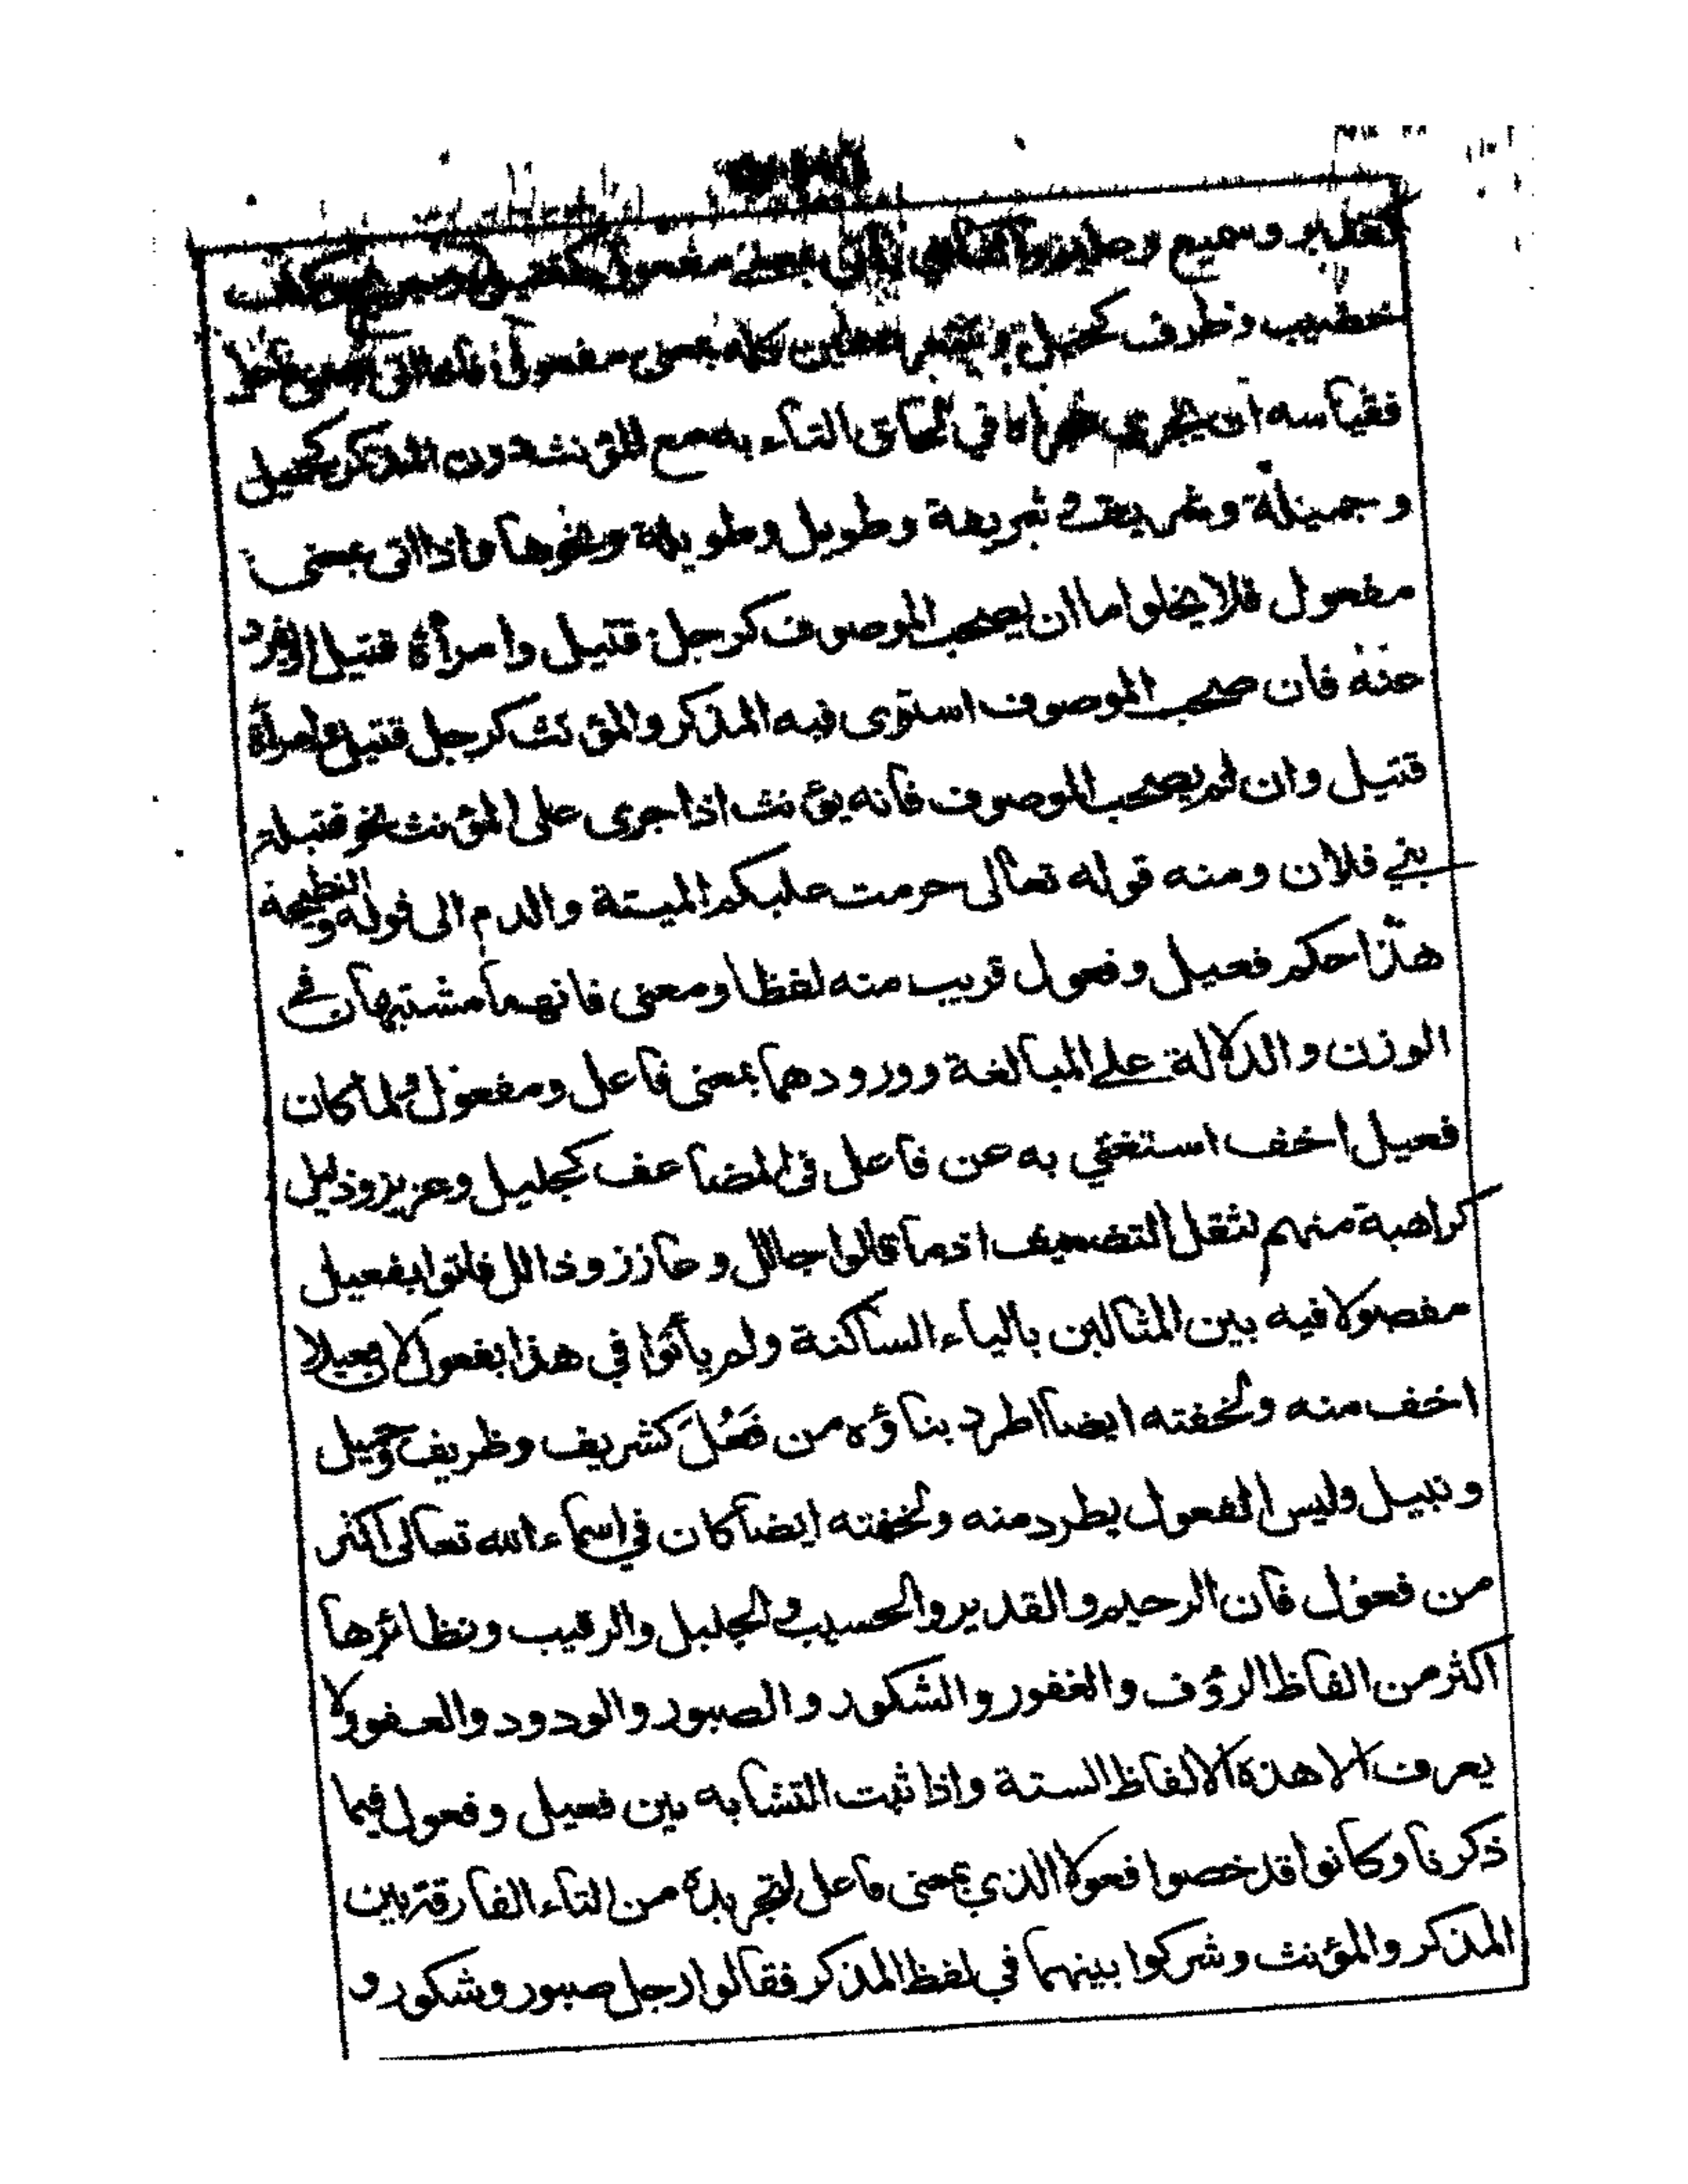 كقدير وسميع وعليم والثاني يأتي بمعنى مفعول كقتيل وجريح وكف
خضيب وطرف كحيل كله بمعنى مفعول فاذا اتى بمعنى فاعل
فقياسه ان يجرى مجراه في الحاق التاء به مع المؤنث دون المذكر كجميل
وجميلة وشريف وشريفة وطويل وطويلة ونحوها واذا اتى بمعنى
مفعول فلا يخلوا ما ان يصحب الموصوف كرجل قتيل وامرأة قتيل او يفرد
عنه فان صحب الموصوف استوى فيه المذكر والمؤنث كرجل قتيل وامرأة
قتيل وان لم يصحب الموصوف فانه يؤنث اذا جرى على المؤنث نحو قتيلة
بني فلان ومنه قوله تعالى حرمت عليكم الميتة والدم الى قوله والنطيحة
هذا حكم فعيل وفعول قريب منه لفظا ومعنى فانهما مشتبهان في
الوزن والدلالة على المبالغة وورودهما بمعنى فاعل ومفعول ولما كان
فعيل اخف استغني به عن فاعل في المضاعف كجليل وعزيز وذليل
كراهية منهم لثقل التضعيف اذما قالوا جالل وعازز وذالل فاتوا بفعيل
مفصولا فيه بين المثالين بالياء الساكنة ولم يأتوا في هذا بفعول لا فعيلا
اخف منه ولخفته ايضا اطرد بناؤه من فَعُلَ كشريف وظريف وجميل
ونبيل وليس لفعول يطرد منه ولخفته ايضا كان في اسماء الله تعالى اكثر
من فعول فان الرحيم والقدير والحسيب والجليل والرقيب ونظائرها
اكثر من الفاظ الرؤف والغفور والشكور والصبور والودود والعفو ولا
يعرف الا هذه الالفاظ الستة واذا ثبت التشابه بين فعيل وفعول فيما
ذكرنا وكانوا قد خصوا فعولا الذي بمعنى فاعل لتجريده من التاء الفارقة بين
المذكر والمؤنث وشركوا بينهما في لفظ المذكر فقالوا رجل صبور وشكور و